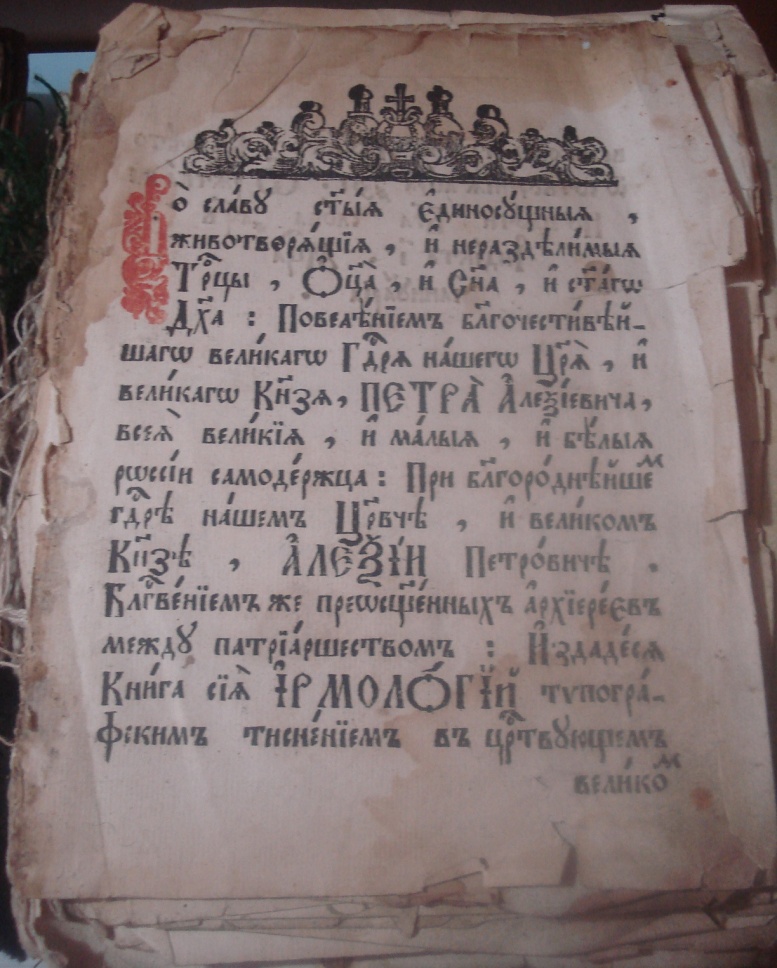 Во̀ сла́вꙋ ст҃ы́ѧ є҆диносꙋ́щныѧ ,
животворѧ́щїѧ , и҆ нераздѣли́мыѧ
Тр҃цы , Ѻ҆ц҃а̀ , и҆ Сн҃а , и҆ ст҃а́гѡ
Дх҃а : Повелѣ́нїемъ бл҃гочести́вѣй-
шагѡ вели́кагѡ Гдⷭ҇рѧ на́шегѡ Цр҃ѧ̀ , и҆
вели́кагѡ Кн҃зѧ , ПЕТРА̀ А҆леѯі́евича ,
всеѧ̀ вели́кїѧ , и҆ ма́лыѧ , и҆ бѣ́лыѧ
рѡссі́и самоде́ржца : При бл҃горо́днѣйшеⷨ
гдⷭ҇рѣ на́шемъ Цр҃вчѣ , и҆ вели́комъ
Кн҃зѣ , А҆ЛЕѮІ́И Петро́вичѣ .
Блгⷭ҇ве́нїемъ же преѡсщ҃е́нныхъ а҆рхїере́євъ
междꙋ̀ патрїа́ршествомъ : И҆здаде́сѧ
Кни́га сїѧ̀ І҆РМОЛО́ГІЙ тѵпогра́-
фскимъ тисне́нїемъ въ црⷭ҇твꙋющемъ
вели́коⷨ